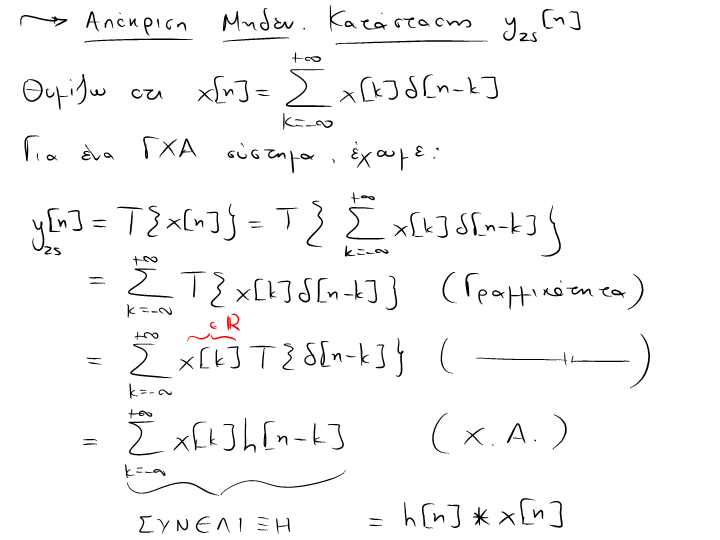 → Απόκριση Μηδεν. Κατάστασης y_zs[n]
Θυμίζω οτι x[n] = \sum_{k=-∞}^{+∞} x[k]δ[n-k]
Για ένα ΓΧΑ σύστημα, έχωμε:
y_zs[n] = T{x[n]} = T{ \sum_{k=-∞}^{+∞} x[k]δ[n-k] }
= \sum_{k=-∞}^{+∞} T{x[k]δ[n-k]} (Γραμμικότητα)
∈ ℝ
= \sum_{k=-∞}^{+∞} x[k] T{δ[n-k]} ( —"— )
= \sum_{k=-∞}^{+∞} x[k]h[n-k] (Χ.Α.)
ΣΥΝΕΛΙΞΗ = h[n] * x[n]